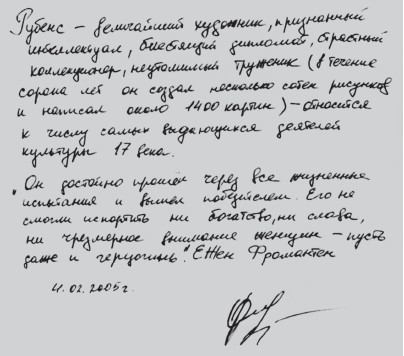 Рубенс – величайший художник, признанный
интеллектуал, блестящий дипломат, страстный
коллекционер, неутомимый труженик (в течение
сорока лет он создал несколько сотен рисунков
и написал около 1400 картин) – относится
к числу самых выдающихся деятелей
культуры 17 века.
"Он достойно прошёл через все жизненные
испытания и вышел победителем. Его не
смогли испортить ни богатство, ни слава,
ни чрезмерное внимание женщин – пусть
даже и герцогинь". Ежен Фромантен
4.02.2005г.